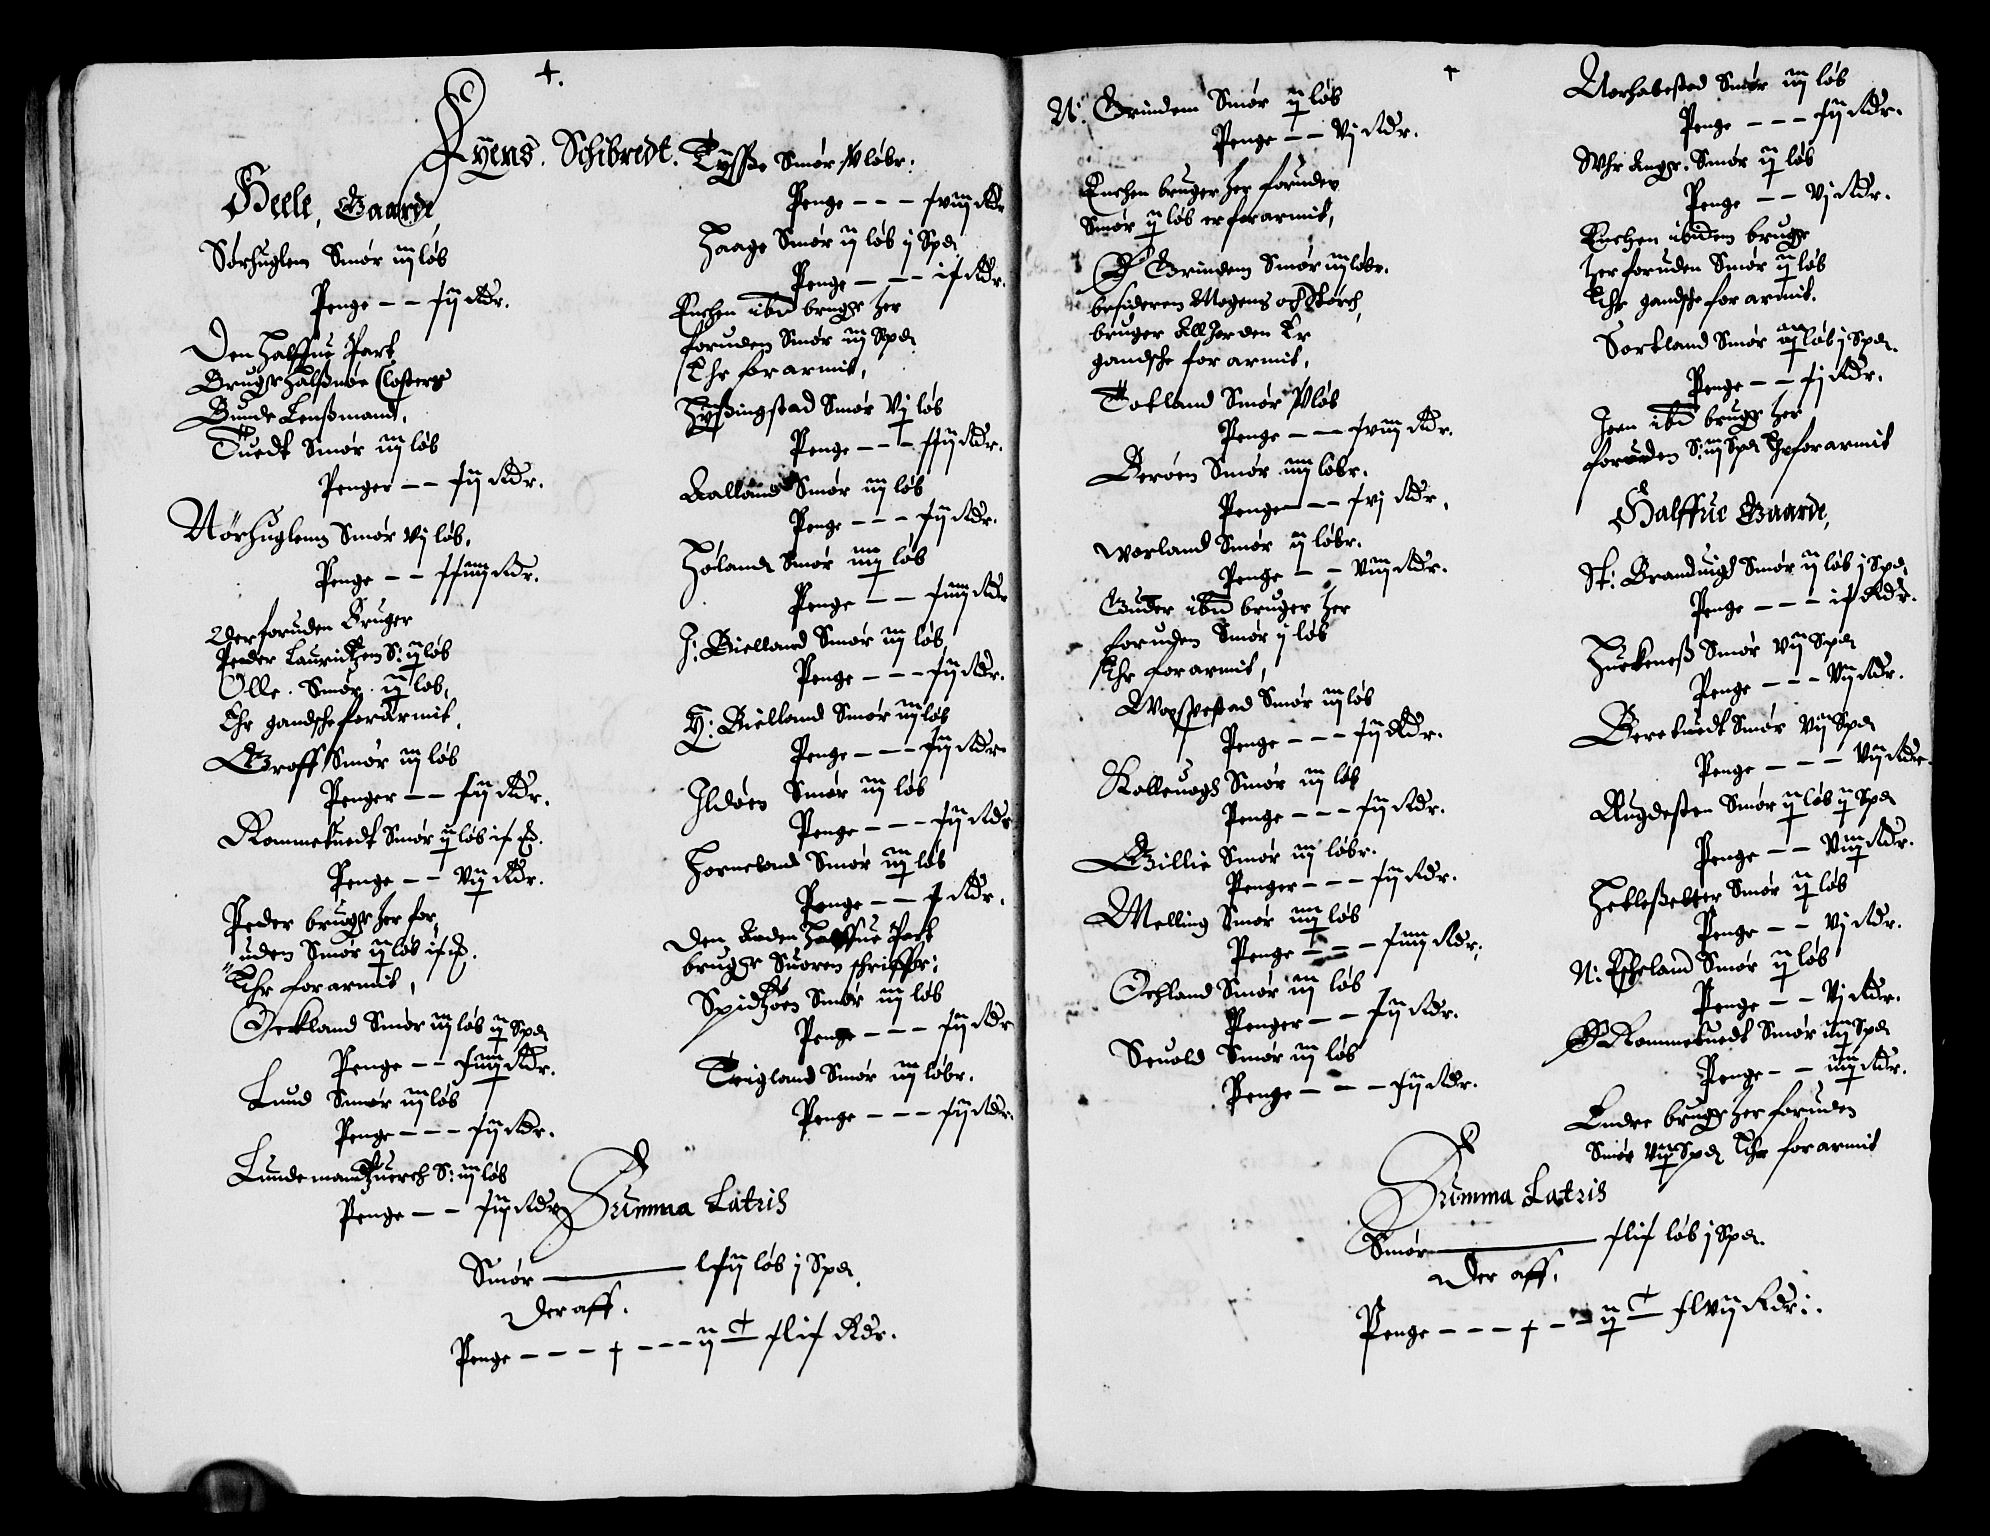 Fyens. Schibredt.
Heele, Gaarde,
Sørhuglem Smør iij løb
Penge -- xij Rdr.
Den halffue Part
Bruger Halsnøe Closters
Bunde Lenßmand,
Tuedt Smør iij løb
Penger -- xij Rdr.
Nørhuglemn Smør vj løb,
Penge -- xxiiij Rdr.
Der foruden Bruger
Peder Lauridtzen S: ij løb
Olle. Smør. ij løb,
Ehr gandsche forarmit,
Groff Smør iij løb
Penger -- xij Rdr.
Rommetuedt Smør ij løb
Penge -- vij Rdr.
Peder bruger her for,
uden Smør ij løb
Ehr forarmit,
Oekland Smør iij løb ij Spd
Penge -- xiiij Rdr.
Lund Smør iij løb
Penge --- xij Rdr.
Lundemandzuerch S: iij løb
Penge -- xij Rdr
Tysße Smør løbr:
Penge --- xviij Rdr
Haage Smør ij løb j Spd
Penge --- ix Rdr.
Enchen ibd bruger her
foruden Smør iij Spd
Ehr forarmit,
Hysßingstad Smør vj løb
Penge --- xxij Rdr.
Aalland Smør iij løb
Penge --- xij Rdr.
Høland Smør iiij løb
Penge -- xiiij Rdr
J: Bielland Smør iij løb,
Penge --- xij Rdr.
Y: Bielland Smør iij løb
Penge --- xij Rdr.
Ildøen Smør iij løb
Penge --- xij Rdr
Horneland Smør iij løb
Penge -- x Rdr.
Den Anden Halffue Part
bruger Suoren schriffr:
Spidzøen Smør iij løb
Penge --- xij Rdr
Teigland Smør iij løbr.
Penge --- xij Rdr.
Summa Latris
Smør — lxij løb j Spd.
Der aff.
Penge ---+--- ij C xlix Rdr.
N: Grindem Smør ij løb
Penge -- vj Rdr.
Enchen bruger her foruden
Smør ij løb er forarmit,
Ø Grindem Smør iij løbr.
besideren Mogens och Storch,
bruger All Jorden Er
gandsche forarmit,
Totland Smør løb
Penge --- xviij Rdr.
Berøen Smør iiij løbr.
Penge -- xvj Rdr,
Worland Smør ij løbr.
Penge -- viij Rdr.
Guder ibd bruger her
foruden Smør ij løb
Ehr forarmit,
Smør iij løb
Penge --- xij Rdr.
Kolleuogh Smør iij løb
Penge --- xij Rdr.
Gillie Smør iij løbr.
Penger --- xij Rdr.
Melling Smør iiij løb
Penge --- xiiij Rdr.
Ochland Smør iij løb
Penger -- xij Rdr.
Seuold Smør iij løb
Penge --- xij Rdr.
Norhabestad Smør iij løb
Penge --- xij Rdr.
Smør ij løb
Penge -- vj Rdr.
Enchen ibidem bruger
her foruden Smør ij løb
Ehr gandsche forarmit.
Sortland Smør iij løb j Spd.
Penge -- xj Rdr.
Joen ibd bruger her
foruden S: iij Spd Ehr forarmit
Halffue Gaarde,
St: Branduigh Smør ij løb j Spd,
Penge --- ix Rdr.
Hueckeneß Smør vij Spd
Penge --- vij Rdr.
Beretuedt Smør vij Spd
Penge --- vij Rdr.
Rugdesten Smør ij løb ij Spd
Penge -- viij Rdr.
Hetleßetter Smør ij løb
Penge -- vj Rdr.
N: Escheland Smør ij løb
Penge -- vj Rdr.
Ø Rommetuedt Smør iiij Spd
Penge -- iiij Rdr.
Endre bruger her foruden
Smør viij Spd Ehr forarmit
Summa Latris
Smør — xlix løb j Spd.
Der aff.
Penge ---+-- ij C xlvij Rdr:.